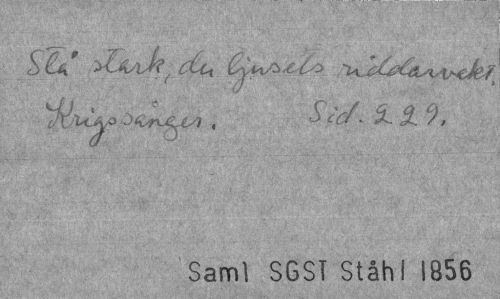 Stå stark, du ljusets riddarvakt.
Krigssånger. Sid. 229.
Saml SGST Ståhl 1856